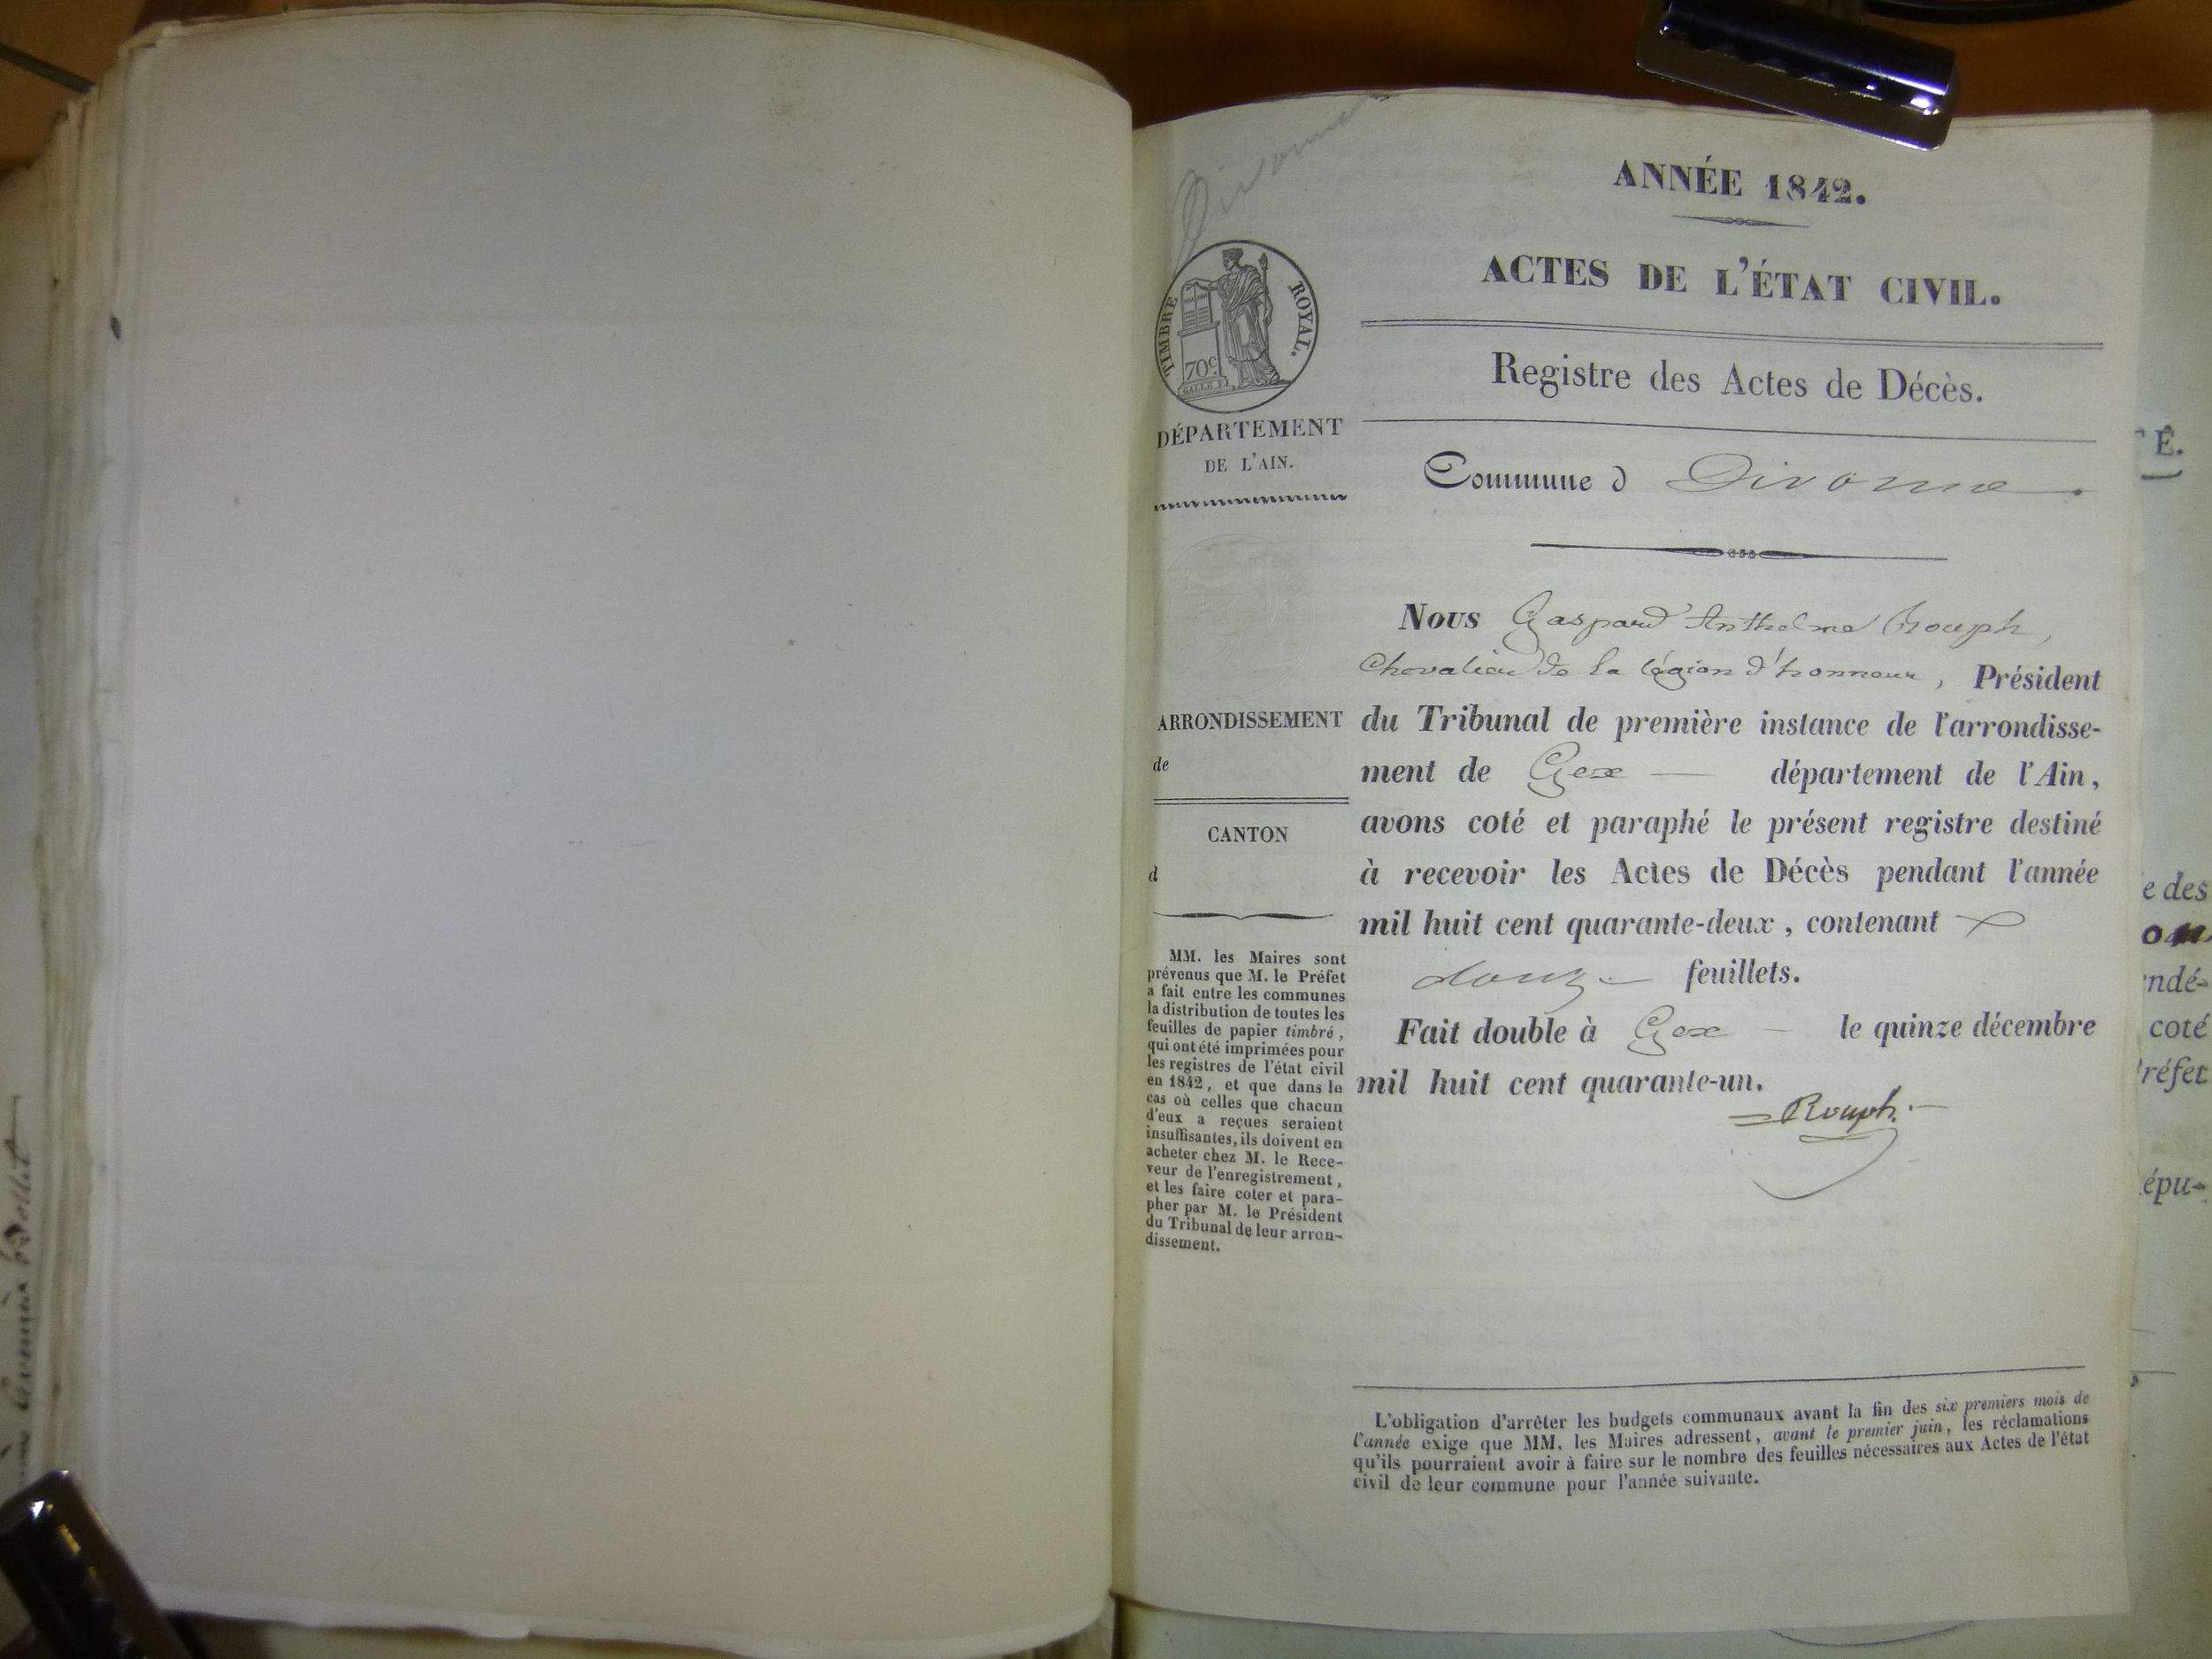 Divonne
ANNÉE 1842.
ACTES DE L'ÉTAT CIVIL.
TIMBRE ROYAL.
70c
Registre des Actes de Décès.
DÉPARTEMENT
DE L'AIN.
Commune d Divonne.
Nous Gaspard Anthelme Rouph,
Chevalier de la légion d'honneur, Président
ARRONDISSEMENT
de
du Tribunal de première instance de l'arrondisse-
ment de Gex — département de l'Ain,
avons coté et paraphé le présent registre destiné
à recevoir les Actes de Décès pendant l'année
mil huit cent quarante-deux, contenant
douze feuillets.
Fait double à Gex — le quinze décembre
mil huit cent quarante-un.
Rouph.
CANTON
d
MM. les Maires sont
prévenus que M. le Préfet
a fait entre les communes
la distribution de toutes les
feuilles de papier timbré,
qui ont été imprimées pour
les registres de l'état civil
en 1842, et que dans le
cas où celles que chacun
d'eux a reçues seraient
insuffisantes, ils doivent en
acheter chez M. le Rece-
veur de l'enregistrement,
et les faire coter et para-
pher par M. le Président
du Tribunal de leur arron-
dissement.
L'obligation d'arrêter les budgets communaux avant la fin des six premiers mois de
l'année exige que MM. les Maires adressent, avant le premier juin, les réclamations
qu'ils pourraient avoir à faire sur le nombre des feuilles nécessaires aux Actes de l'état
civil de leur commune pour l'année suivante.
É.
e des
ndé-
coté
réfet
épu-